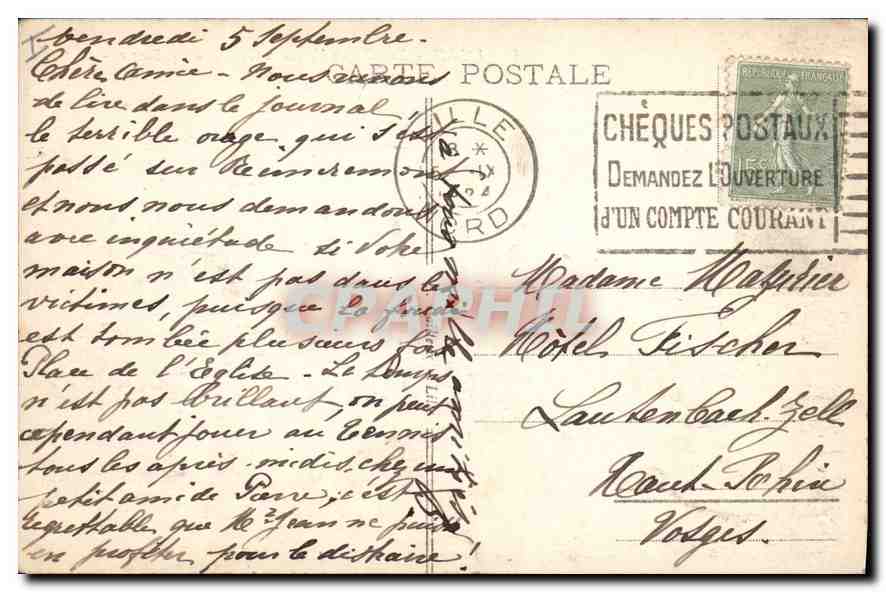 Vendredi 5 Septembre.
Chère amie - Nous venons
de lire dans le journal
le terrible orage qui s'est
passé sur Remiremont
et nous nous demandons
avec inquiétude si votre
maison n'est pas dans les
victimes, puisque la foudre
est tombée plusieurs fois
Place de l'Eglise - Le temps
n'est pas brillant, on peut
cependant jouer au tennis
tous les après-midis, chez un
petit ami de Pierre, c'est
regrettable que Mr Jean ne puisse
en profiter pour le distraire!
mille amitiés
CARTE POSTALE
LILLE
NORD
CHÈQUES POSTAUX
DEMANDEZ L'OUVERTURE
d'UN COMPTE COURANT
REPUBLIQUE FRANÇAISE
15c
Madame
Hôtel Fischer
Lautenbach-Zell
Haut-Rhin
Vosges.
CPAPHIL